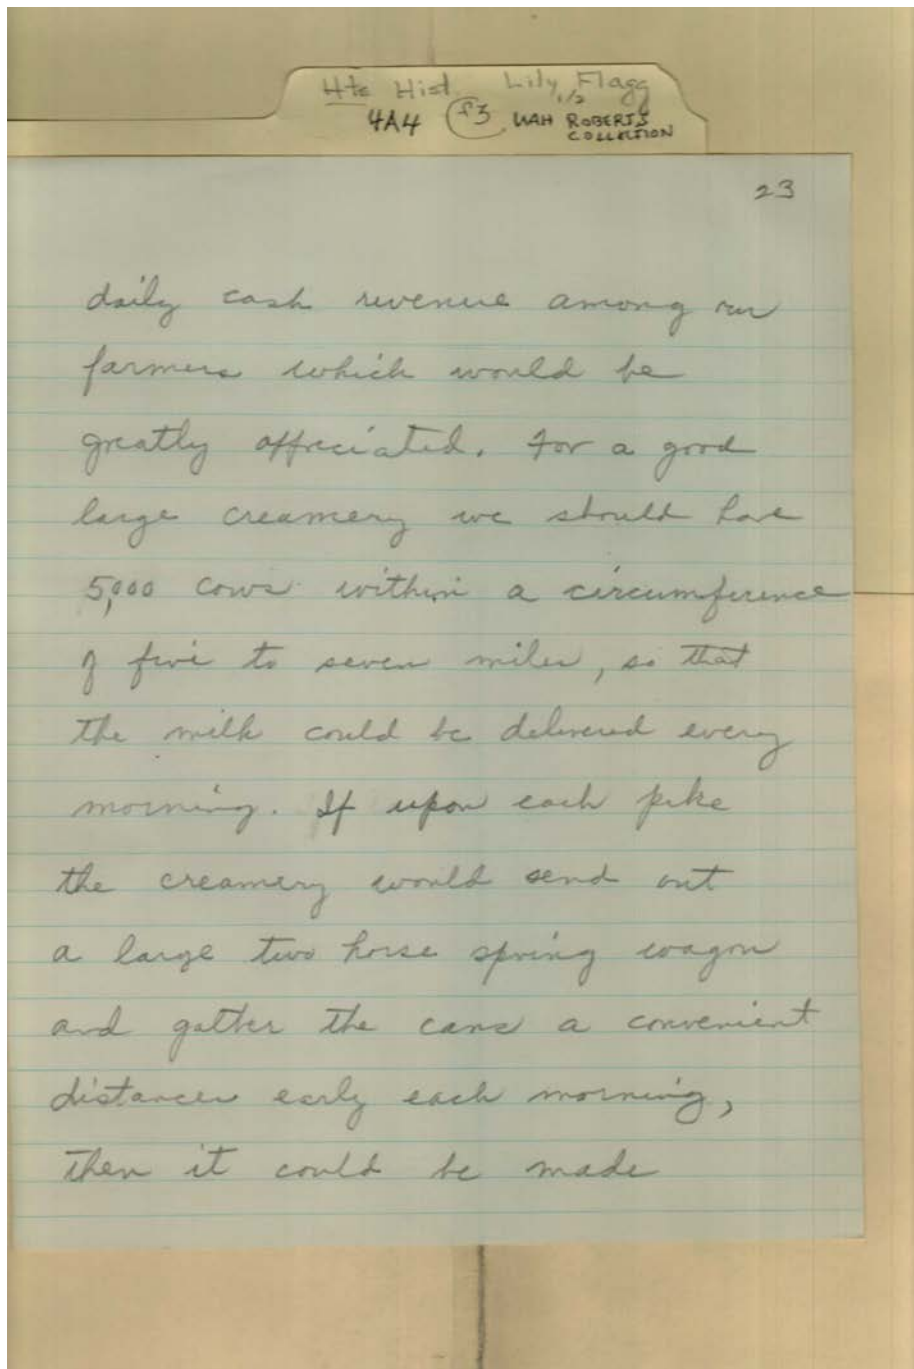 Hts Hist. Lily Flagg
1/2
4A4 f3 UAH ROBERTS
COLLECTION
23
daily cash revenue among our
farmers which would be
greatly appreciated. For a good
large creamery we should have
5,000 cows within a circumference
of five to seven miles, so that
the milk could be delivered every
morning. If upon each pike
the creamery would send out
a large two horse spring wagon
and gather the cans a convenient
distances early each morning,
then it could be made